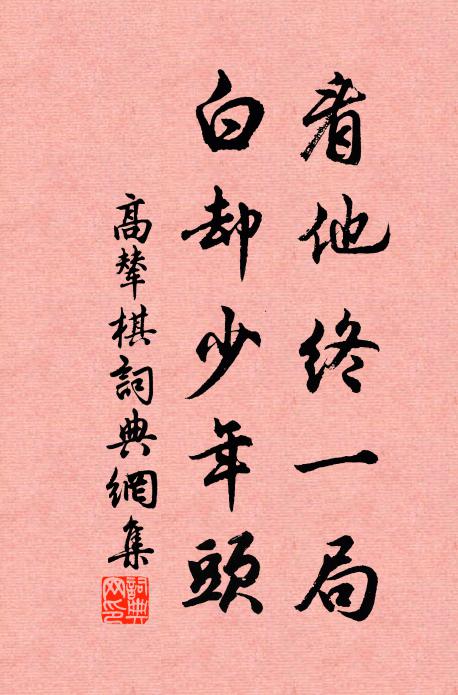 看他終一局
白却少年頭
高輦棋詞典網集
詞典网印